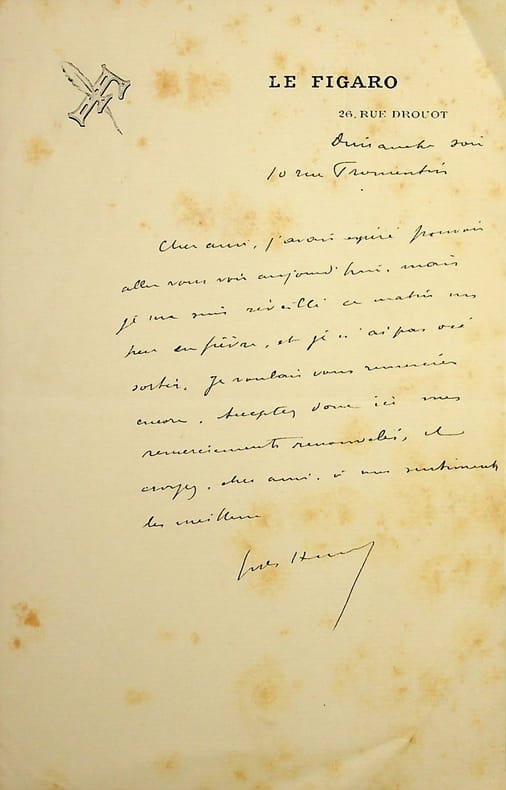 LE FIGARO
26, RUE DROUOT
Dimanche soir
10 rue Fromentin
Cher ami, j'avais espéré pouvoir
aller vous voir aujourd'hui, mais
je me suis réveillé ce matin un
peu en fièvre, et je n'ai pas osé
sortir. Je voulais vous remercier
encore. Acceptez donc ici mes
remerciements renouvelés, et
croyez, cher ami, à mes sentiments
les meilleurs
Jules